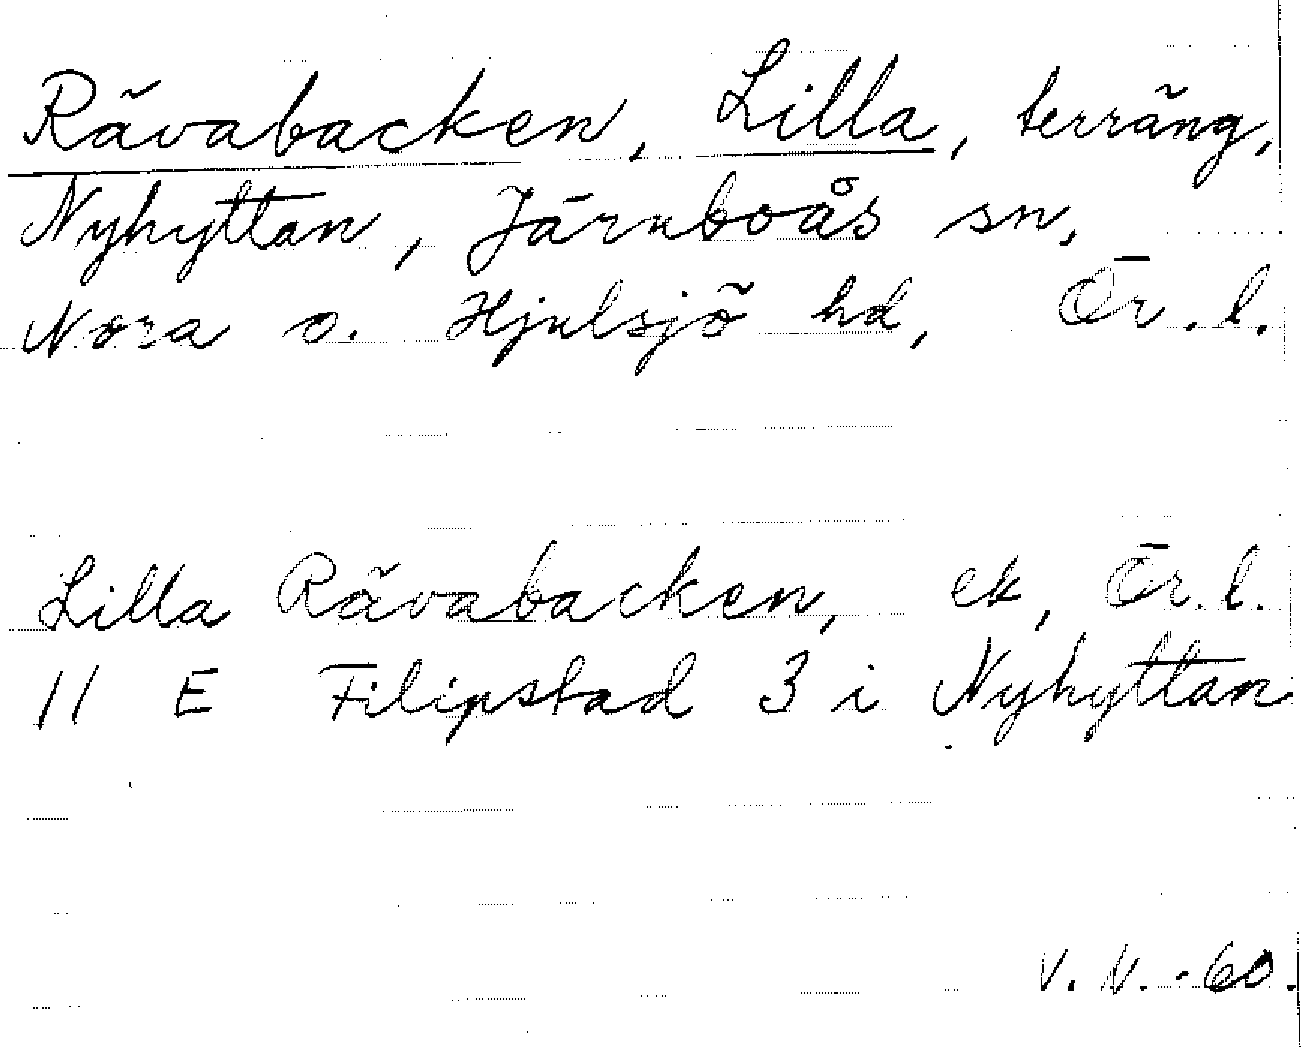 Rävabacken, Lilla, terräng,
Nyhyttan, Järnboås sn,
Nora o. Hjulsjö hd, Ör. l.
Lilla Rävabacken, ek, Ör. l.
11 E Filipstad 3 i Nyhyttan
V. N. -60.